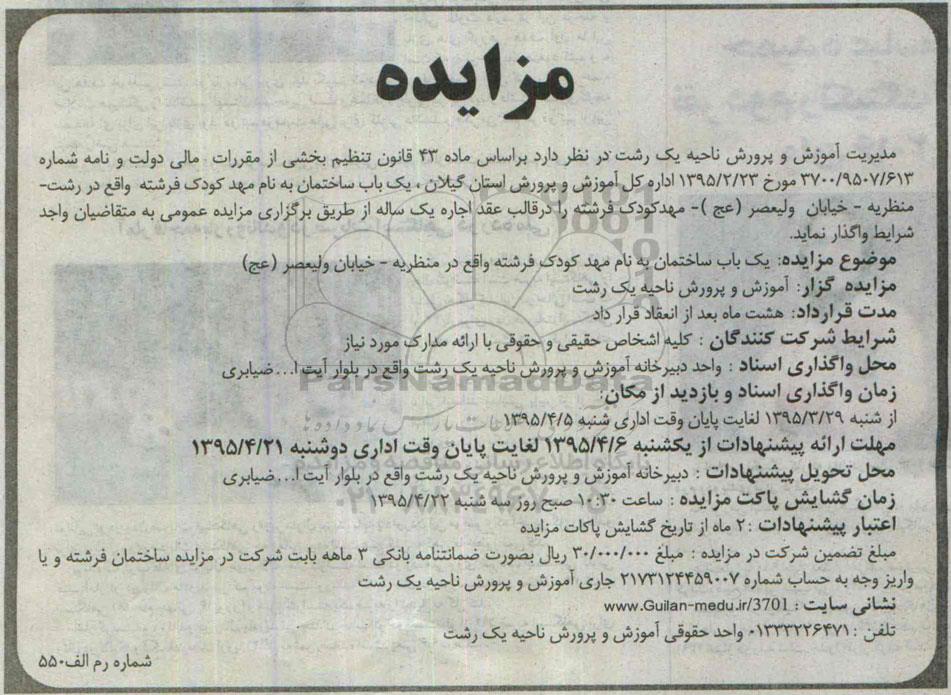 مزایده
مدیریت آموزش و پرورش ناحیه یک رشت در نظر دارد براساس ماده ۴۳ قانون تنظیم بخشی از مقررات مالی دولت و نامه شماره
۳۷۰۰/۹۵۰۷/۶۱۳ مورخ ۱۳۹۵/۲/۲۳ اداره کل آموزش و پرورش استان گیلان ، یک باب ساختمان به نام مهد کودک فرشته واقع در رشت-
منظریه - خیابان ولیعصر (عج )- مهدکودک فرشته را درقالب عقد اجاره یک ساله از طریق برگزاری مزایده عمومی به متقاضیان واجد
شرایط واگذار نماید.
موضوع مزایده: یک باب ساختمان به نام مهد کودک فرشته واقع در منظریه - خیابان ولیعصر (عج)
مزایده گزار: آموزش و پرورش ناحیه یک رشت
مدت قرارداد: هشت ماه بعد از انعقاد قرار داد
شرایط شرکت کنندگان : کلیه اشخاص حقیقی و حقوقی با ارائه مدارک مورد نیاز
محل واگذاری اسناد : واحد دبیرخانه آموزش و پرورش ناحیه یک رشت واقع در بلوار آیت ا... ضیابری
زمان واگذاری اسناد و بازدید از مکان:
از شنبه ۱۳۹۵/۳/۲۹ لغایت پایان وقت اداری شنبه ۱۳۹۵/۴/۵
مهلت ارائه پیشنهادات از یکشنبه ۱۳۹۵/۴/۶ لغایت پایان وقت اداری دوشنبه ۱۳۹۵/۴/۲۱
محل تحویل پیشنهادات : دبیرخانه آموزش و پرورش ناحیه یک رشت واقع در بلوار آیت ا... ضیابری
زمان گشایش پاکت مزایده : ساعت ۱۰:۳۰ صبح روز سه شنبه ۱۳۹۵/۴/۲۲
اعتبار پیشنهادات : ۲ ماه از تاریخ گشایش پاکات مزایده
مبلغ تضمین شرکت در مزایده : مبلغ ۳۰/۰۰۰/۰۰۰ ریال بصورت ضمانتنامه بانکی ۳ ماهه بابت شرکت در مزایده ساختمان فرشته و یا
واریز وجه به حساب شماره ۲۱۷۳۱۲۴۴۵۹۰۰۷ جاری آموزش و پرورش ناحیه یک رشت
نشانی سایت : www.Guilan-medu.ir/3701
تلفن : ۰۱۳۳۳۲۲۶۴۷۱ واحد حقوقی آموزش و پرورش ناحیه یک رشت
شماره رم الف۵۵۰
ParsNamadData